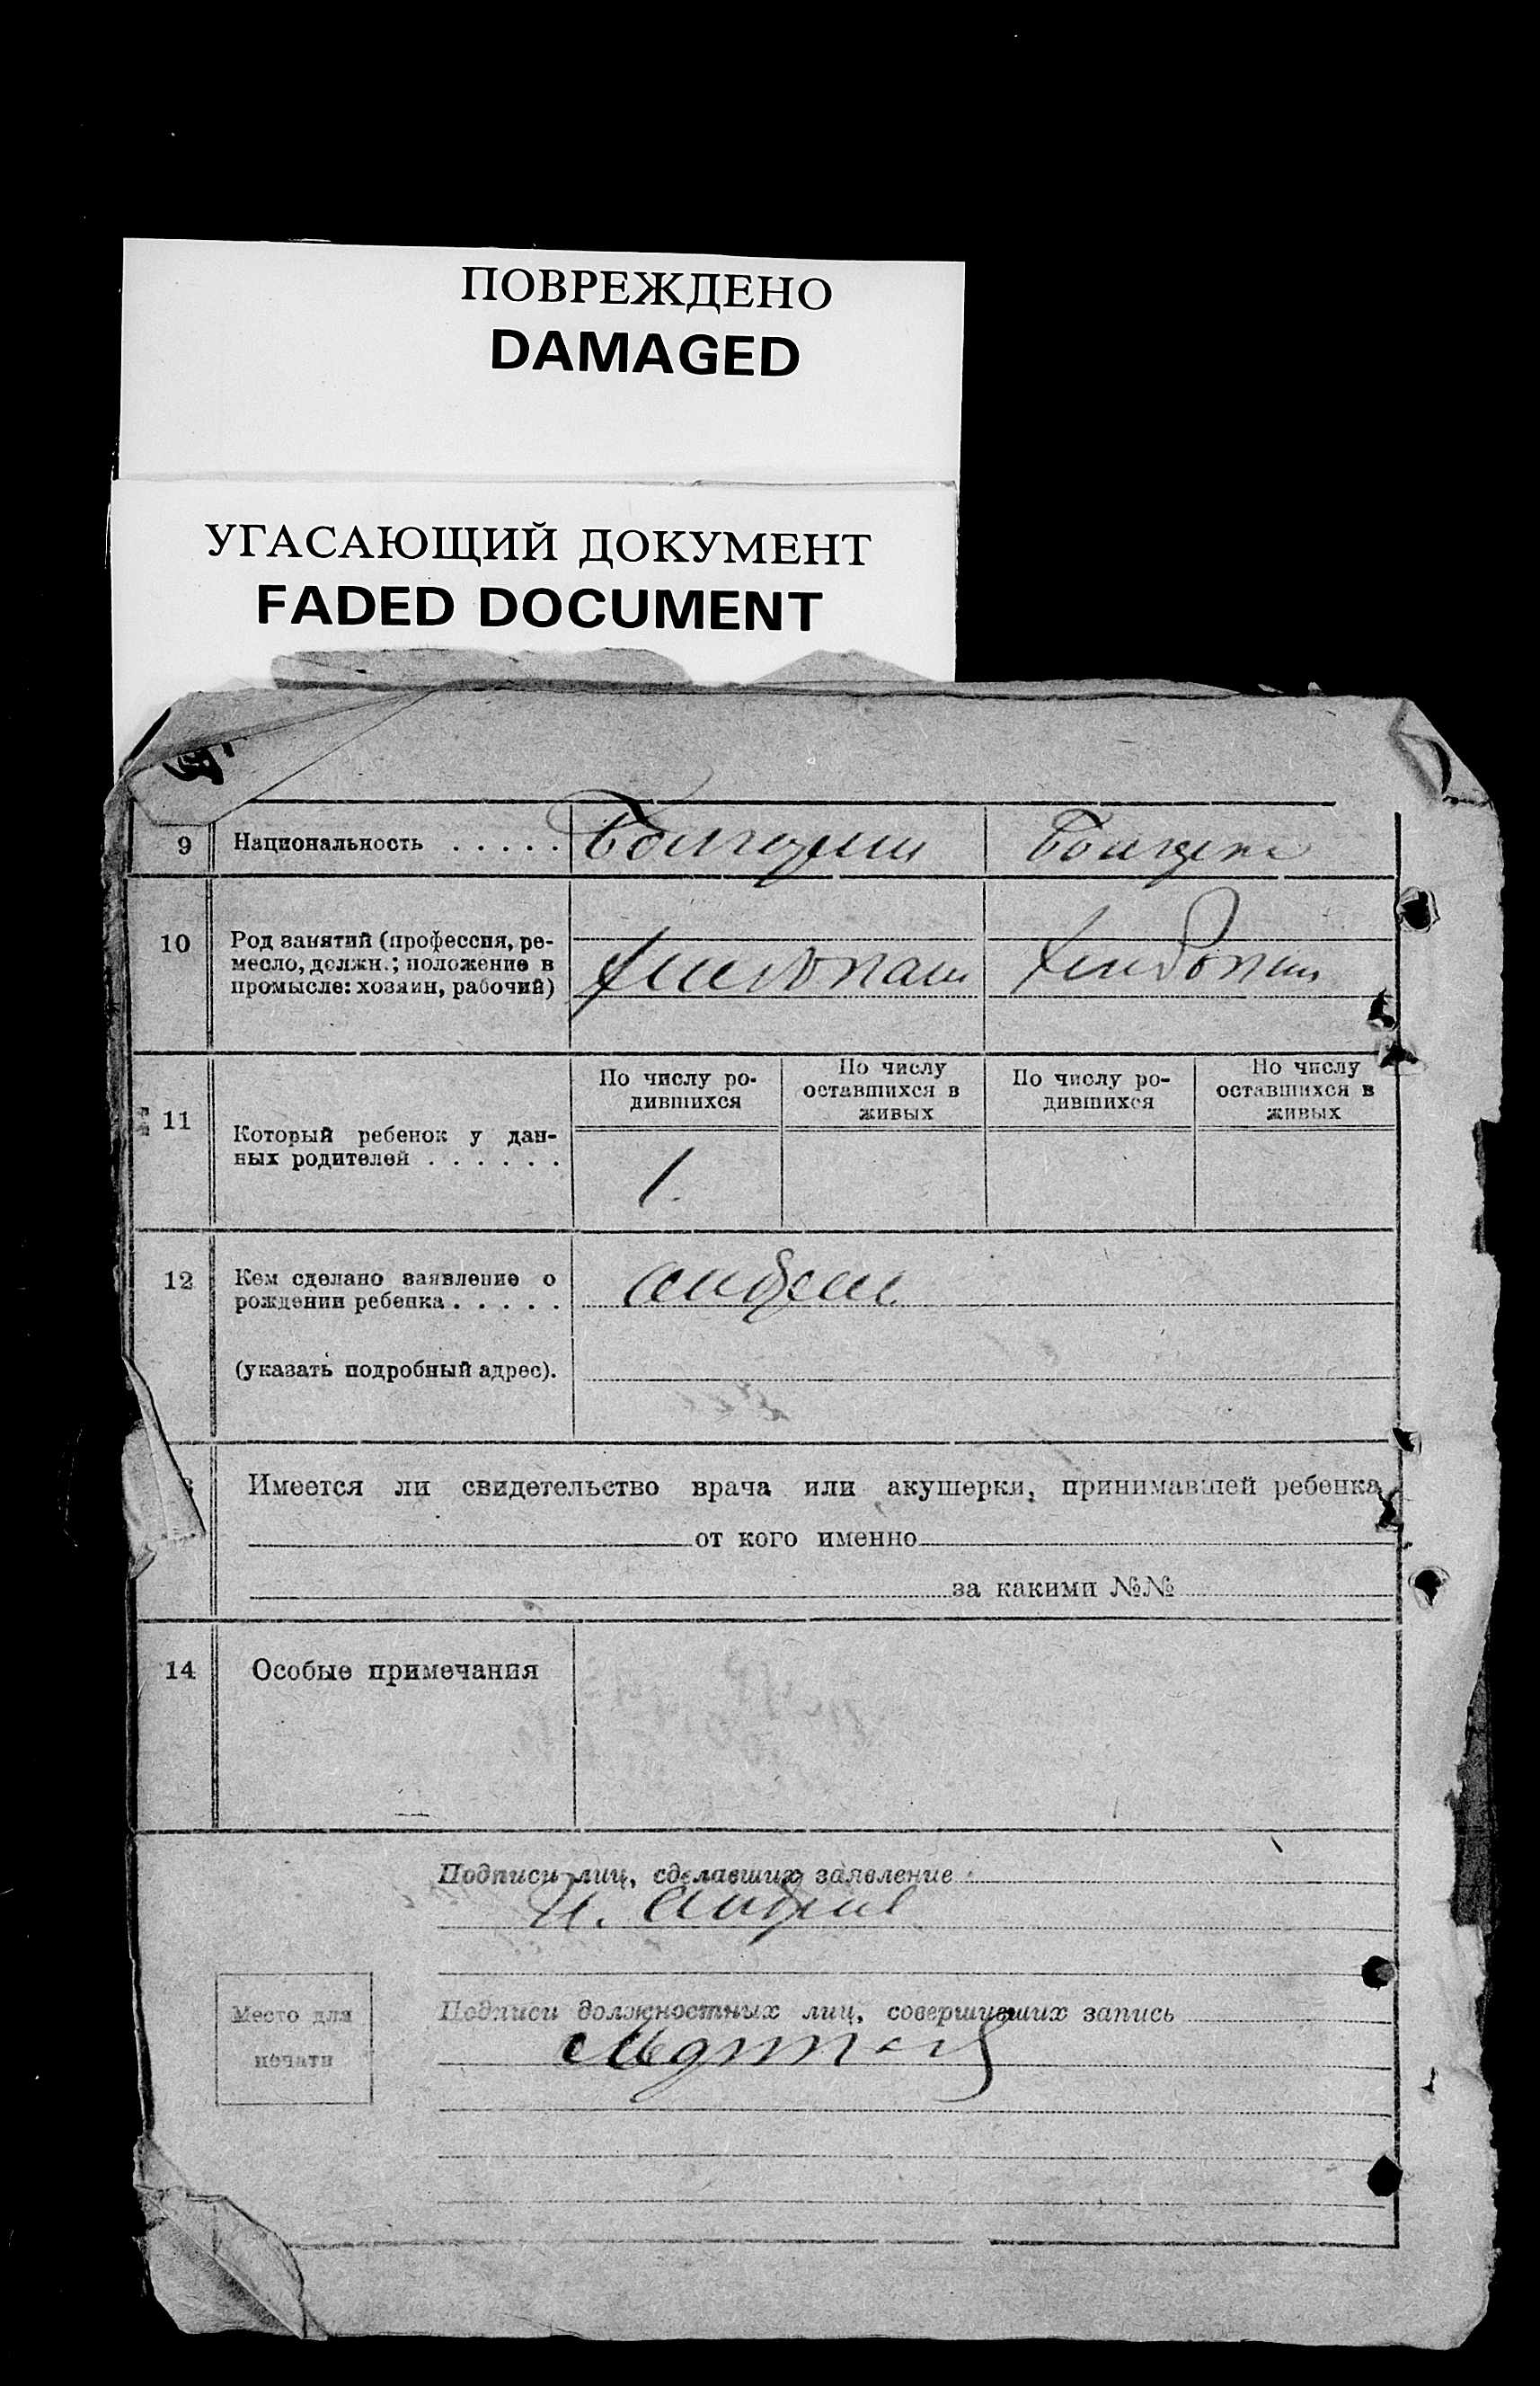 ПОВРЕЖДЕНО
DAMAGED
УГАСАЮЩИЙ ДОКУМЕНТ
FADED DOCUMENT
9 Национальность . . . . . Болгарин Болгарка
10 Род занятий (профессия, ре-
месло, должн.; положение в
промысле: хозяин, рабочий)
Хлебопаш Хлебопаш
11 Который ребенок у дан-
ных родителей . . . . . .
По числу ро-
дившихся
По числу
оставшихся в
живых
По числу ро-
дившихся
По числу
оставшихся в
живых
1.
12 Кем сделано заявление о
рождении ребенка . . . . .
(указать подробный адрес).
Имеется ли свидетельство врача или акушерки, принимавшей ребенка
от кого именно
за какими №№
14 Особые примечания
Подписи лиц, сделавших заявление
Место для
печати
Подписи должностных лиц, совершивших запись